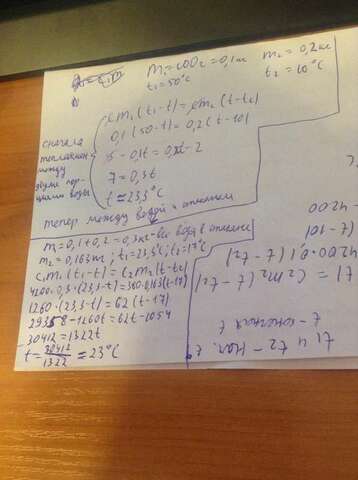 m₁=100г=0,1кг m₂=0,2кг
t₁=50°C t₂=10°C
сначала
теплообмен
между
двумя пор-
циями воды
cm₁(t₁-t)=cm₂(t-t₂)
0,1(50-t)=0,2(t-10)
5-0,1t=0,2t-2
7=0,3t
t≈23,3°C
тепер между водой и
m₁=0,1+0,2=0,3кг-вся вода в
m₂=0,163кг; t₁=23,3°C; t₂=17°C
c₁m₁(t₁-t)=c₂m₂(t-t₂)
4200·0,3·(23,3-t)=380·0,163(t-17)
1260·(23,3-t)=62(t-17)
29358-1260t=62t-1054
30412=1322t
t=30412/1322≈23°C
t₁ и t₂-нач. t
t-конечная
t)=c₂m₂(t-t₂)
4200·0,1(t-t₂)
(t-10)
4200